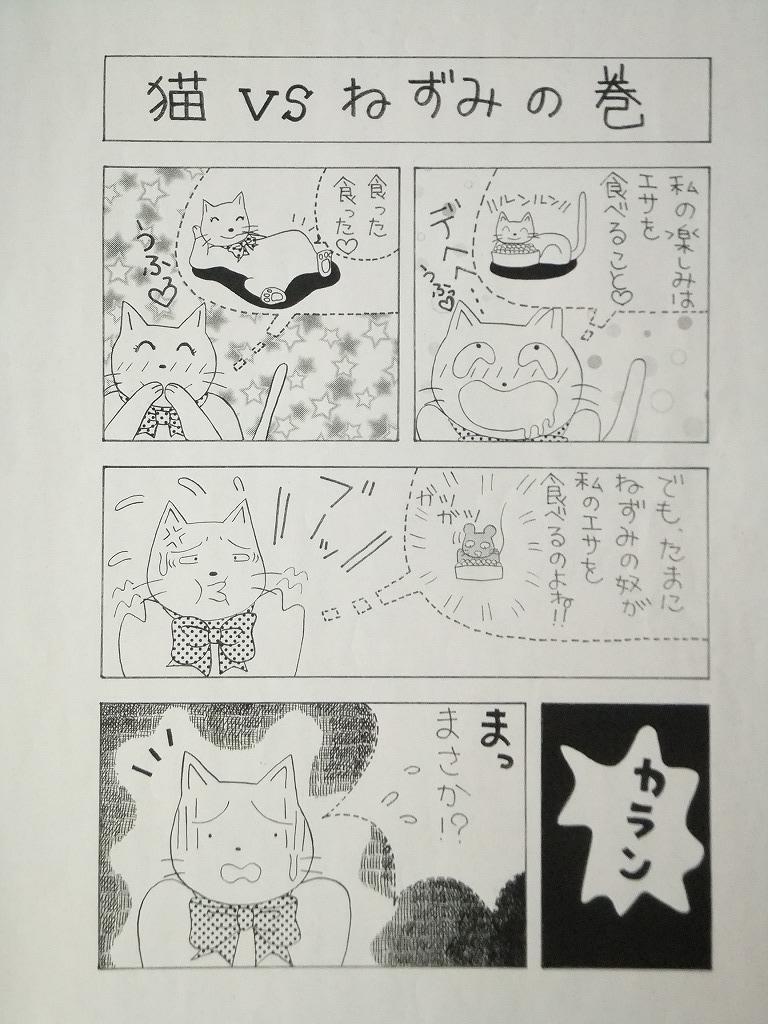 猫 vs ねずみの巻
私の楽しみは
エサを
食べること♡
ルンルン
デヘヘ
うふっ♡
食った
食った♡
うふっ♡
でも、たまに
ねずみの奴が
私のエサを
食べるのよね!!
ガツ
ガツ
プンッ
カラン
まっ
まさか!?